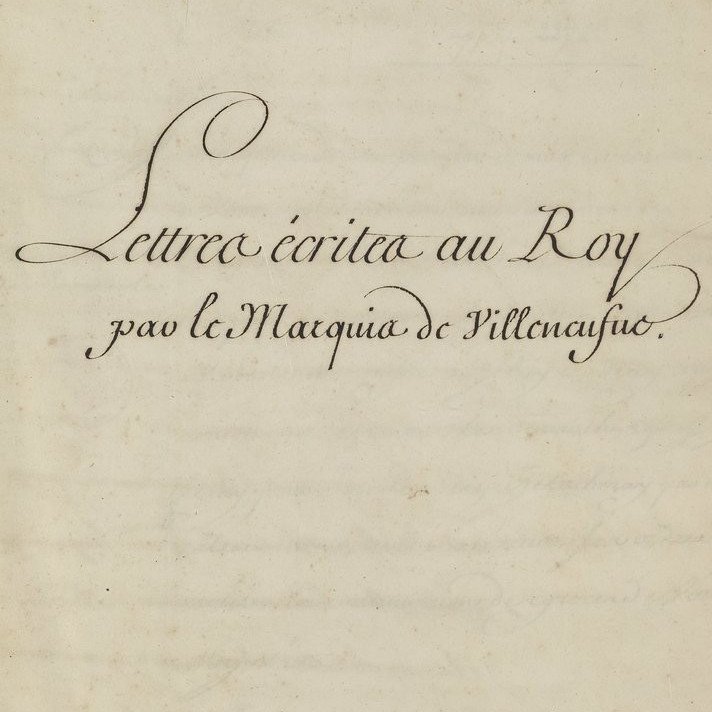 Lettres écrites au Roy
par le Marquis de Villeneufue.